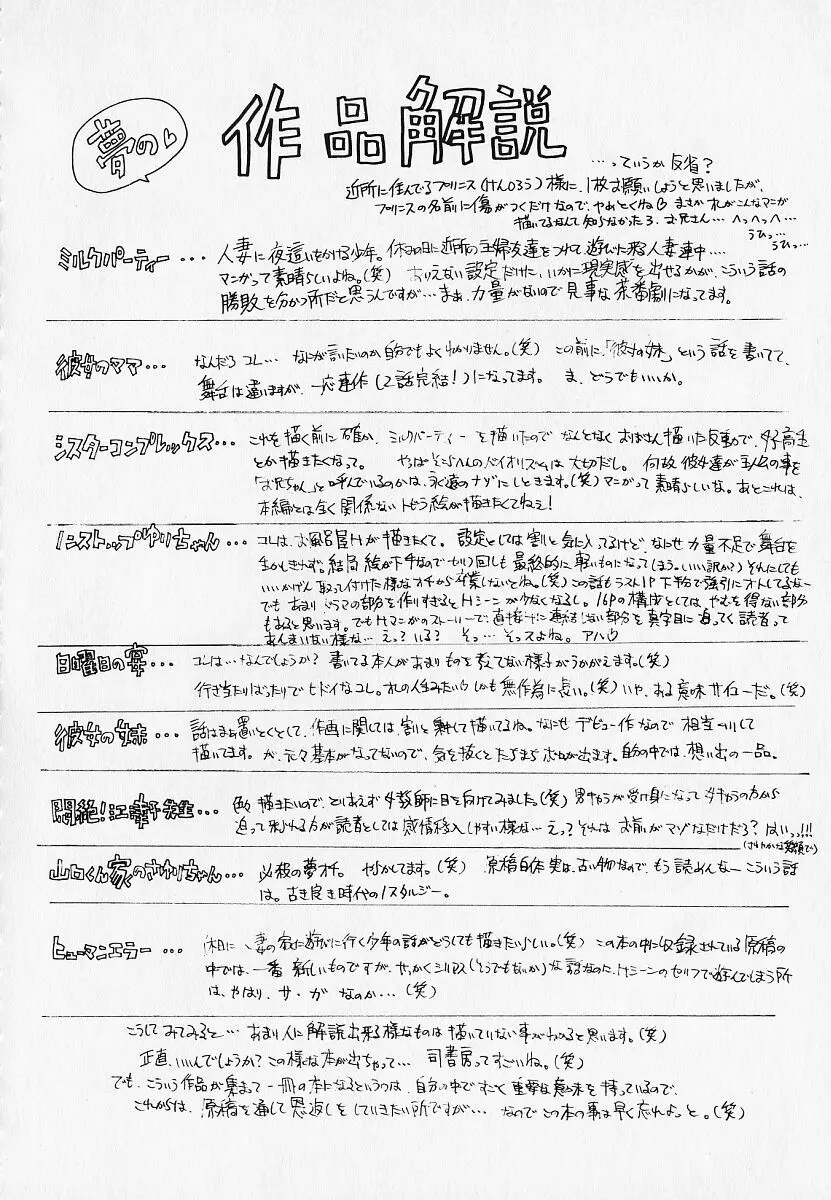 夢の
作品解説
…っていうか反省?
近所に住んでるプリンス(けんじろう)様に、1枚お願いしようと思いましたが、
プリンスの名前に傷がつくだけなので、やめとくね まさかオレがこんなマンガ
描いてるなんて知らなかたろ、お兄さん… へっへっへ…
うひっ… うひっ…
ミルクパーティー… 人妻に夜這いをかける少年。休みの日に近所の主婦友達をつれて遊びに来る人妻連中…
マンガって素晴らしいよね。(笑) ありえない設定だけに、いかに現実感を出せるかが、こういう話の
勝敗を分かつ所だと思うんですが…まぁ、力量がないので見事な茶番劇になってます。
彼女のママ… なんだろコレ… なにが言いたいのか自分でもよくわかりません。(笑) この前に、「彼女の妹」という話を書いてて、
舞台は違いますが、一応連作(2話完結!)になってます。 ま、どうでもいいか。
シスターコンプレックス… これを描く前に確か、ミルクパーティーを描いたので なんとなくおばさん描いた反動で、女子高生
とか描きたくなって。 やっぱそこらへんのバイオリズムは大切だし。 何故彼女達が主人公の事を
「お兄ちゃん」と呼んでいるのかは、永遠のナゾにしときます。(笑) マンガって素晴らしいな。あとこれは、
本編とは全く関係ないトビラ絵が描きたくてねぇ!
ノンストップゆりちゃん… コレは、お風呂屋Hが描きたくて。設定としては割と気に入ってるけど、なにせ力量不足で舞台を
生かしきれず。結局絵が下手なのでセリフ回しも最終的に軽いものになってしまう。(いい訳か?) それにしても
いいかげん取って付けた様なオチから卒業しないとね。(笑) この話もラスト1P 下ネタで強引にオトしてるなー
でも あまりドラマの部分を作りすぎるとHシーンが少なくなるし。16Pの構成としては、やむを得ない部分
もあると思います。でもHマンガのストーリーで、直接Hに連結しない部分を真面目に追ってく読者って
あんまいない様な… えっ?いる? そっ…そっスよね。アハ
日曜日の宴… コレは…なんでしょうか? 書いてる本人があまりものを教えてない様子がうかがえます。(笑)
行き当たりばったりでヒドイなコレ。オレの人生みたい しかも無作為に長い。(笑) いや、ある意味サイコーだ。(笑)
彼女の妹… 話はまぁ置いとくとして、作画に関しては割と無理して描いてるね。なにせデビュー作なので相当ムリして
描いてます。が、元々基本がなってないので、気を抜くとたちまちボロが出ます。自分の中では、想い出の一品。
悶絶!江幸子先生… 色々描きたいので、とりあえず女教師に目を向けてみました。(笑) 男キャラが受け身になって女キャラの方から
迫って来られる方が読者としては感情移入しやすい様な… えっ? それは お前がマゾなだけだろ? はいっっ!!!
(さわやかな笑顔で)
山口くん家のさゆりちゃん… 必殺の夢オチ。 やらかしてます。(笑) 原稿自体実は、古い物なので、もう読めんなー こういう話
は。古き良き時代のノスタルジー。
ヒューマンエラー… 人妻の家に遊びに行く少年の話がどうしても描きたいらしい。(笑) この本の中に収録されている原稿の
中では、一番新しいものですが、せっかくシリアス(そうでもないか)な話なのに、Hシーンのセリフで遊んでしまう所
は、やはり サ・ガ なのか…(笑)
こうしてみてみると… あまり人に解説出来る様なものは描いていない事がわかると思います。(笑)
正直、いいんでしょうか? この様な本が出ちゃって… 司書房ってすごいね。(笑)
でも、こういう作品が集まって一冊の本になるというのは、自分の中ですごく重要な意味を持っているので、
これからは、原稿を通して恩返しをしていきたい所ですが… なのでこの本の事は早く忘れよっと。(笑)